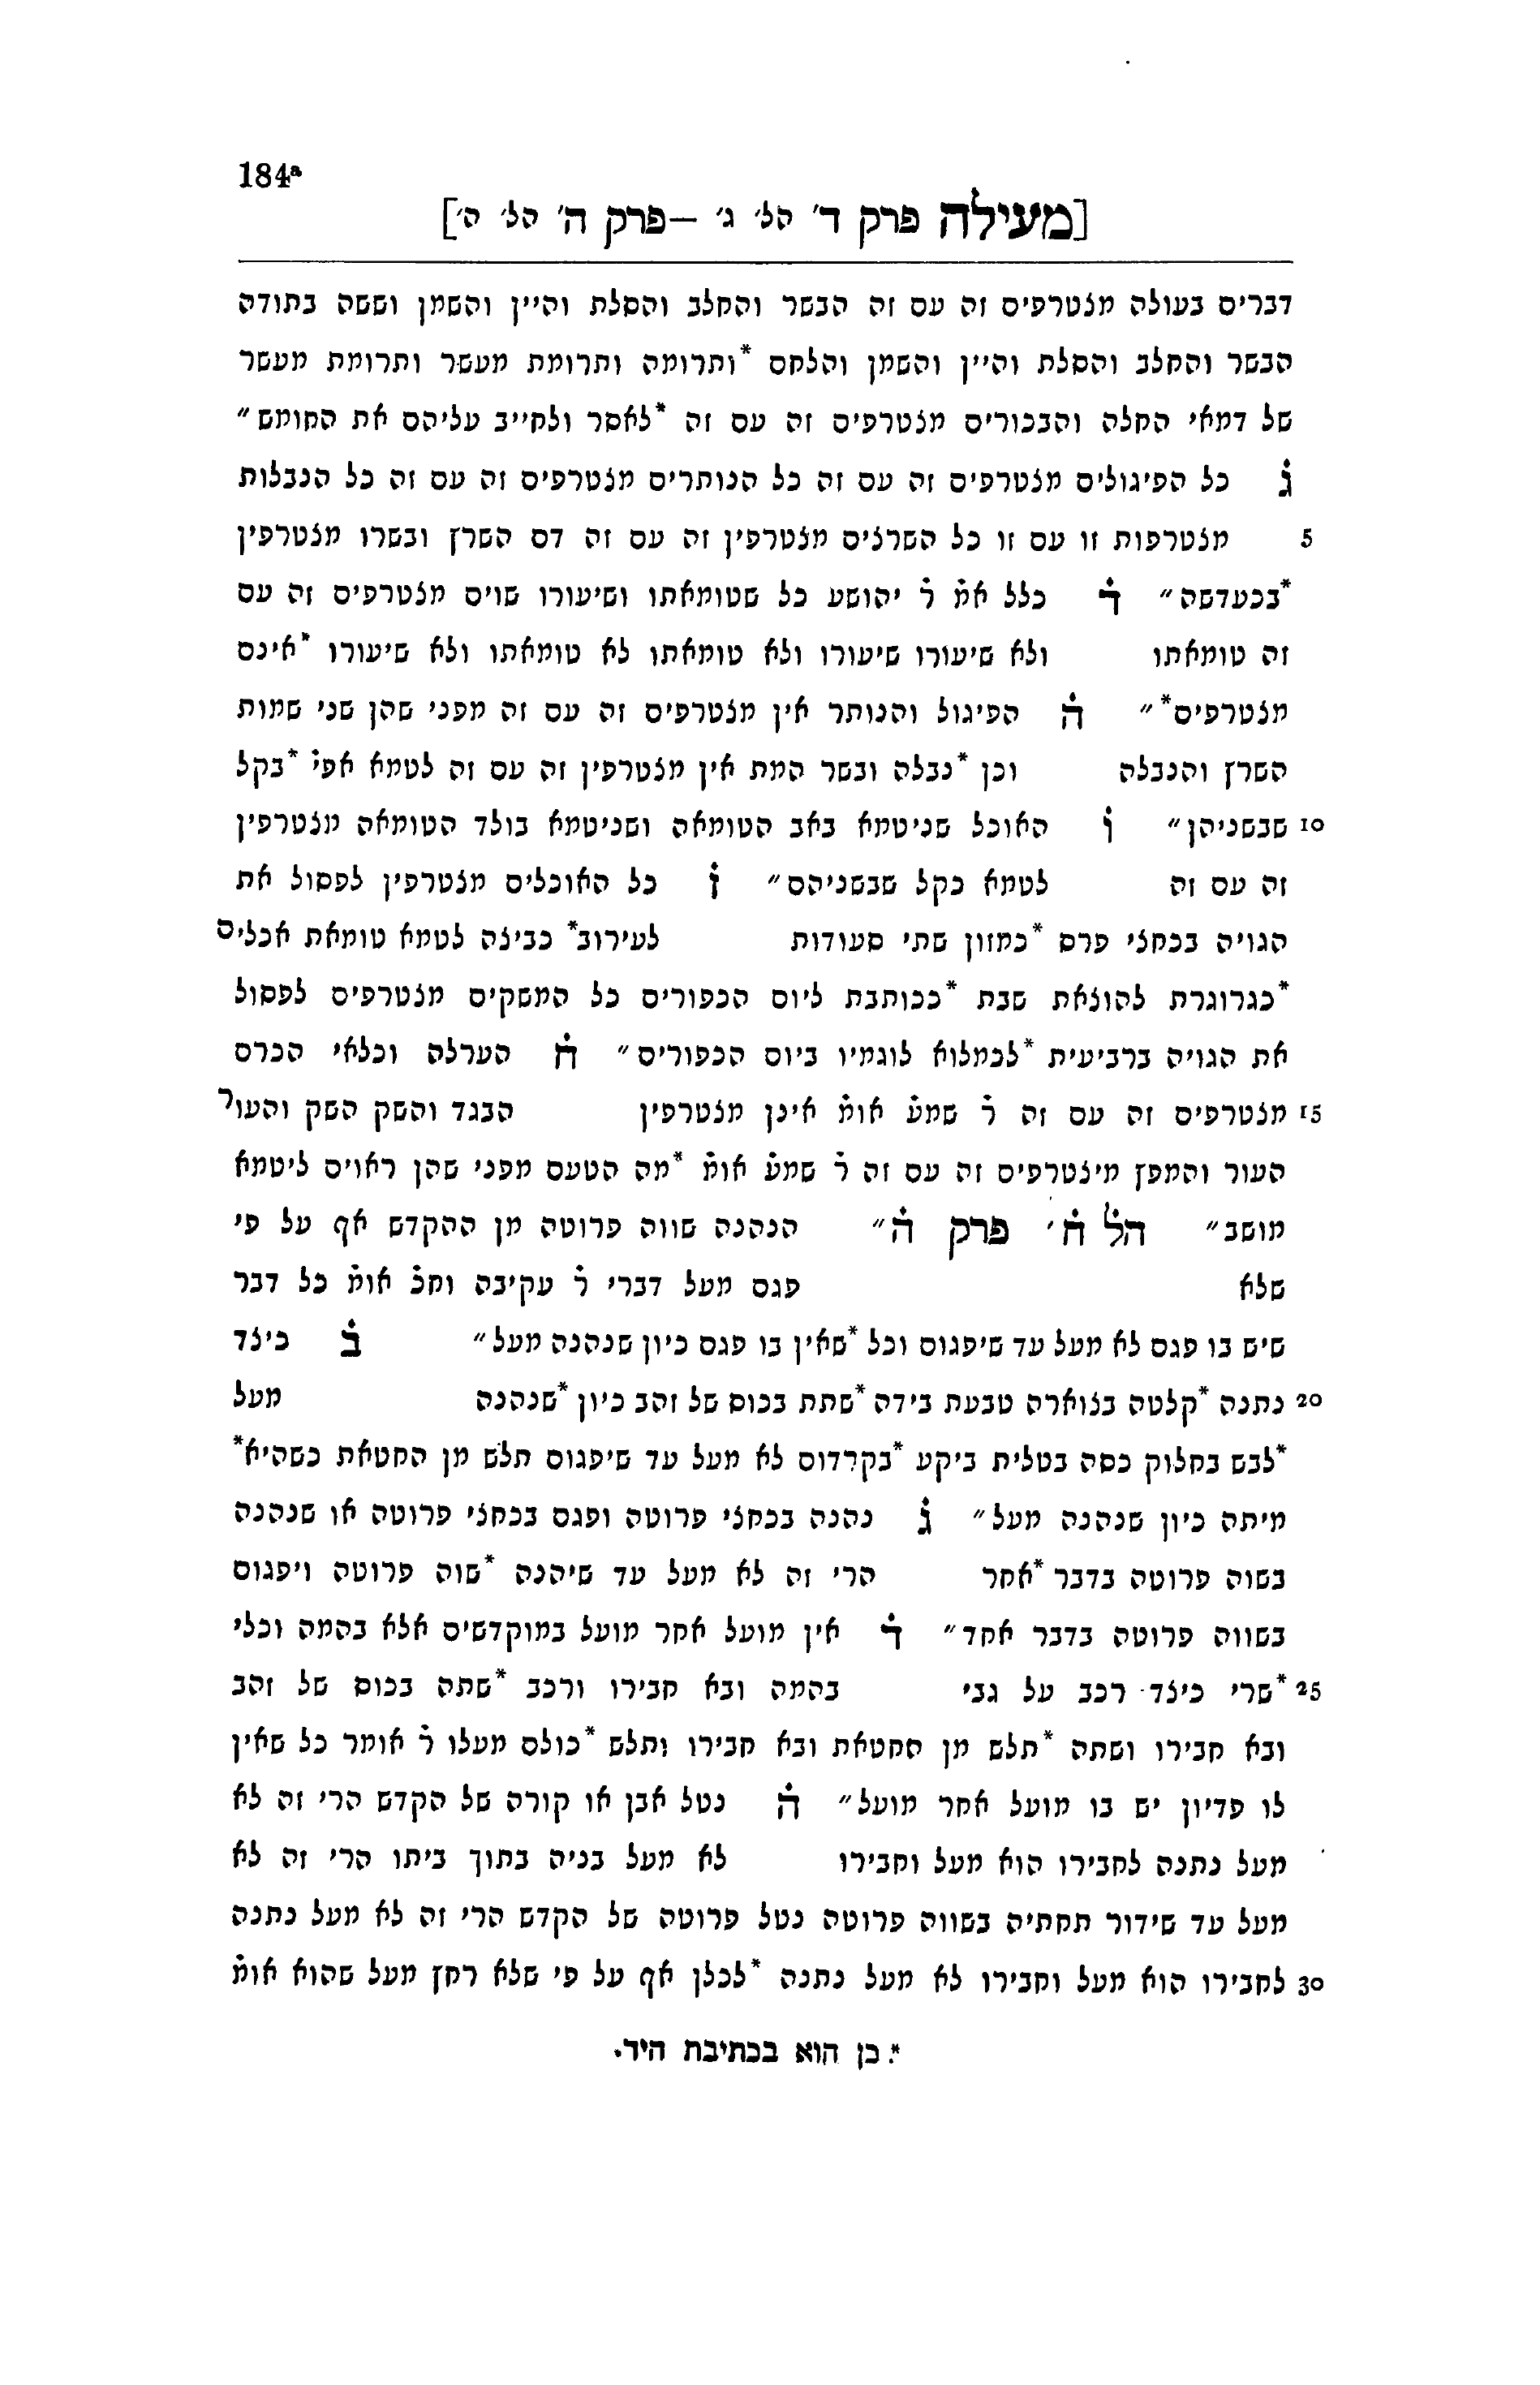 184ª
[מעילה פרק ד׳ הל׳ ג׳ – פרק ה׳ הל׳ ה׳]
דברים בעולה מצטרפים זה עם זה הבשר והחלב והסלת והיין והשמן וששה בתודה
הבשר והחלב והסלת והיין והשמן והלחם *ותרומה ותרומת מעשר ותרומת מעשר
של דמאי החלה והבכורים מצטרפים זה עם זה *לאסר ולחייב עליהם את החומש״
ג̇ כל הפיגולים מצטרפים זה עם זה כל הנותרים מצטרפים זה עם זה כל הנבלות
5 מצטרפות זו עם זו כל השרצים מצטרפין זה עם זה דם השרץ ובשרו מצטרפין
*בכעדשה״ ד̇ כלל אמ̇ ר̇ יהושע כל שטומאתו ושיעורו שוים מצטרפים זה עם
זה טומאתו ולא שיעורו שיעורו ולא טומאתו לא טומאתו ולא שיעורו *אינם
מצטרפים*״ ה̇ הפיגול והנותר אין מצטרפים זה עם זה מפני שהן שני שמות
השרץ והנבלה וכן *נבלה ובשר המת אין מצטרפין זה עם זה לטמא אפי̇ *בקל
10 שבשניהן״ ו̇ האוכל שניטמא באב הטומאה ושניטמא בולד הטומאה מצטרפין
זה עם זה לטמא כקל שבשניהם״ ז̇ כל האוכלים מצטרפין לפסול את
הגויה בכחצי פרס *כמזון שתי סעודות לעירוב* כביצה לטמא טומאת אכלים
*כגרוגרת להוצאת שבת *ככותבת ליום הכפורים כל המשקים מצטרפים לפסול
את הגויה ברביעית *לכמלוא לוגמיו ביום הכפורים״ ח̇ הערלה וכלאי הכרם
15 מצטרפים זה עם זה ר̇ שמע̇ אומ̇ אינן מצטרפין הבגד והשק השק והעור
העור והמפץ מיצטרפים זה עם זה ר̇ שמע̇ אומ̇ *מה הטעם מפני שהן ראוים ליטמא
מושב״ הל̇ ח̇׳ פרק ה̇״ הנהנה שווה פרוטה מן ההקדש אף על פי
שלא פגם מעל דברי ר̇ עקיבה וחכ̇ אומ̇ כל דבר
שיש בו פגם לא מעל עד שיפגום וכל *שאין בו פגם כיון שנהנה מעל״ ב̇ כיצד
20 נתנה *קלטה בצוארה טבעת בידה *שתת בכוס של זהב כיון *שנהנה מעל
*לבש בחלוק כסה בטלית ביקע *בקרדום לא מעל עד שיפגום תלש מן החטאת כשהיא*
מיתה כיון שנהנה מעל״ ג̇ נהנה בכחצי פרוטה ופגם בכחצי פרוטה או שנהנה
בשוה פרוטה בדבר *אחר הרי זה לא מעל עד שיהנה *שוה פרוטה ויפגום
בשווה פרוטה בדבר אחד״ ד̇ אין מועל אחר מועל במוקדשים אלא בהמה וכלי
25 *שרי כיצד רכב על גבי בהמה ובא חבירו ורכב *שתה בכוס של זהב
ובא חבירו ושתה *תלש מן החטאת ובא חבירו ותלש *כולם מעלו ר̇ אומר כל שאין
לו פדיון יש בו מועל אחר מועל״ ה̇ נטל אבן או קורה של הקדש הרי זה לא
מעל נתנה לחבירו הוא מעל וחבירו לא מעל בניה בתוך ביתו הרי זה לא
מעל עד שידור תחתיה בשווה פרוטה נטל פרוטה של הקדש הרי זה לא מעל נתנה
30 לחבירו הוא מעל וחבירו לא מעל נתנה *לבלן אף על פי שלא רחץ מעל שהוא אומ̇
*. כן הוא בכתיבת היד.